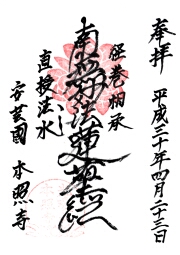 奉拝
平成三十年四月二十三日
経巻相承
南無妙法蓮華経
直授法水
安芸國 本照寺